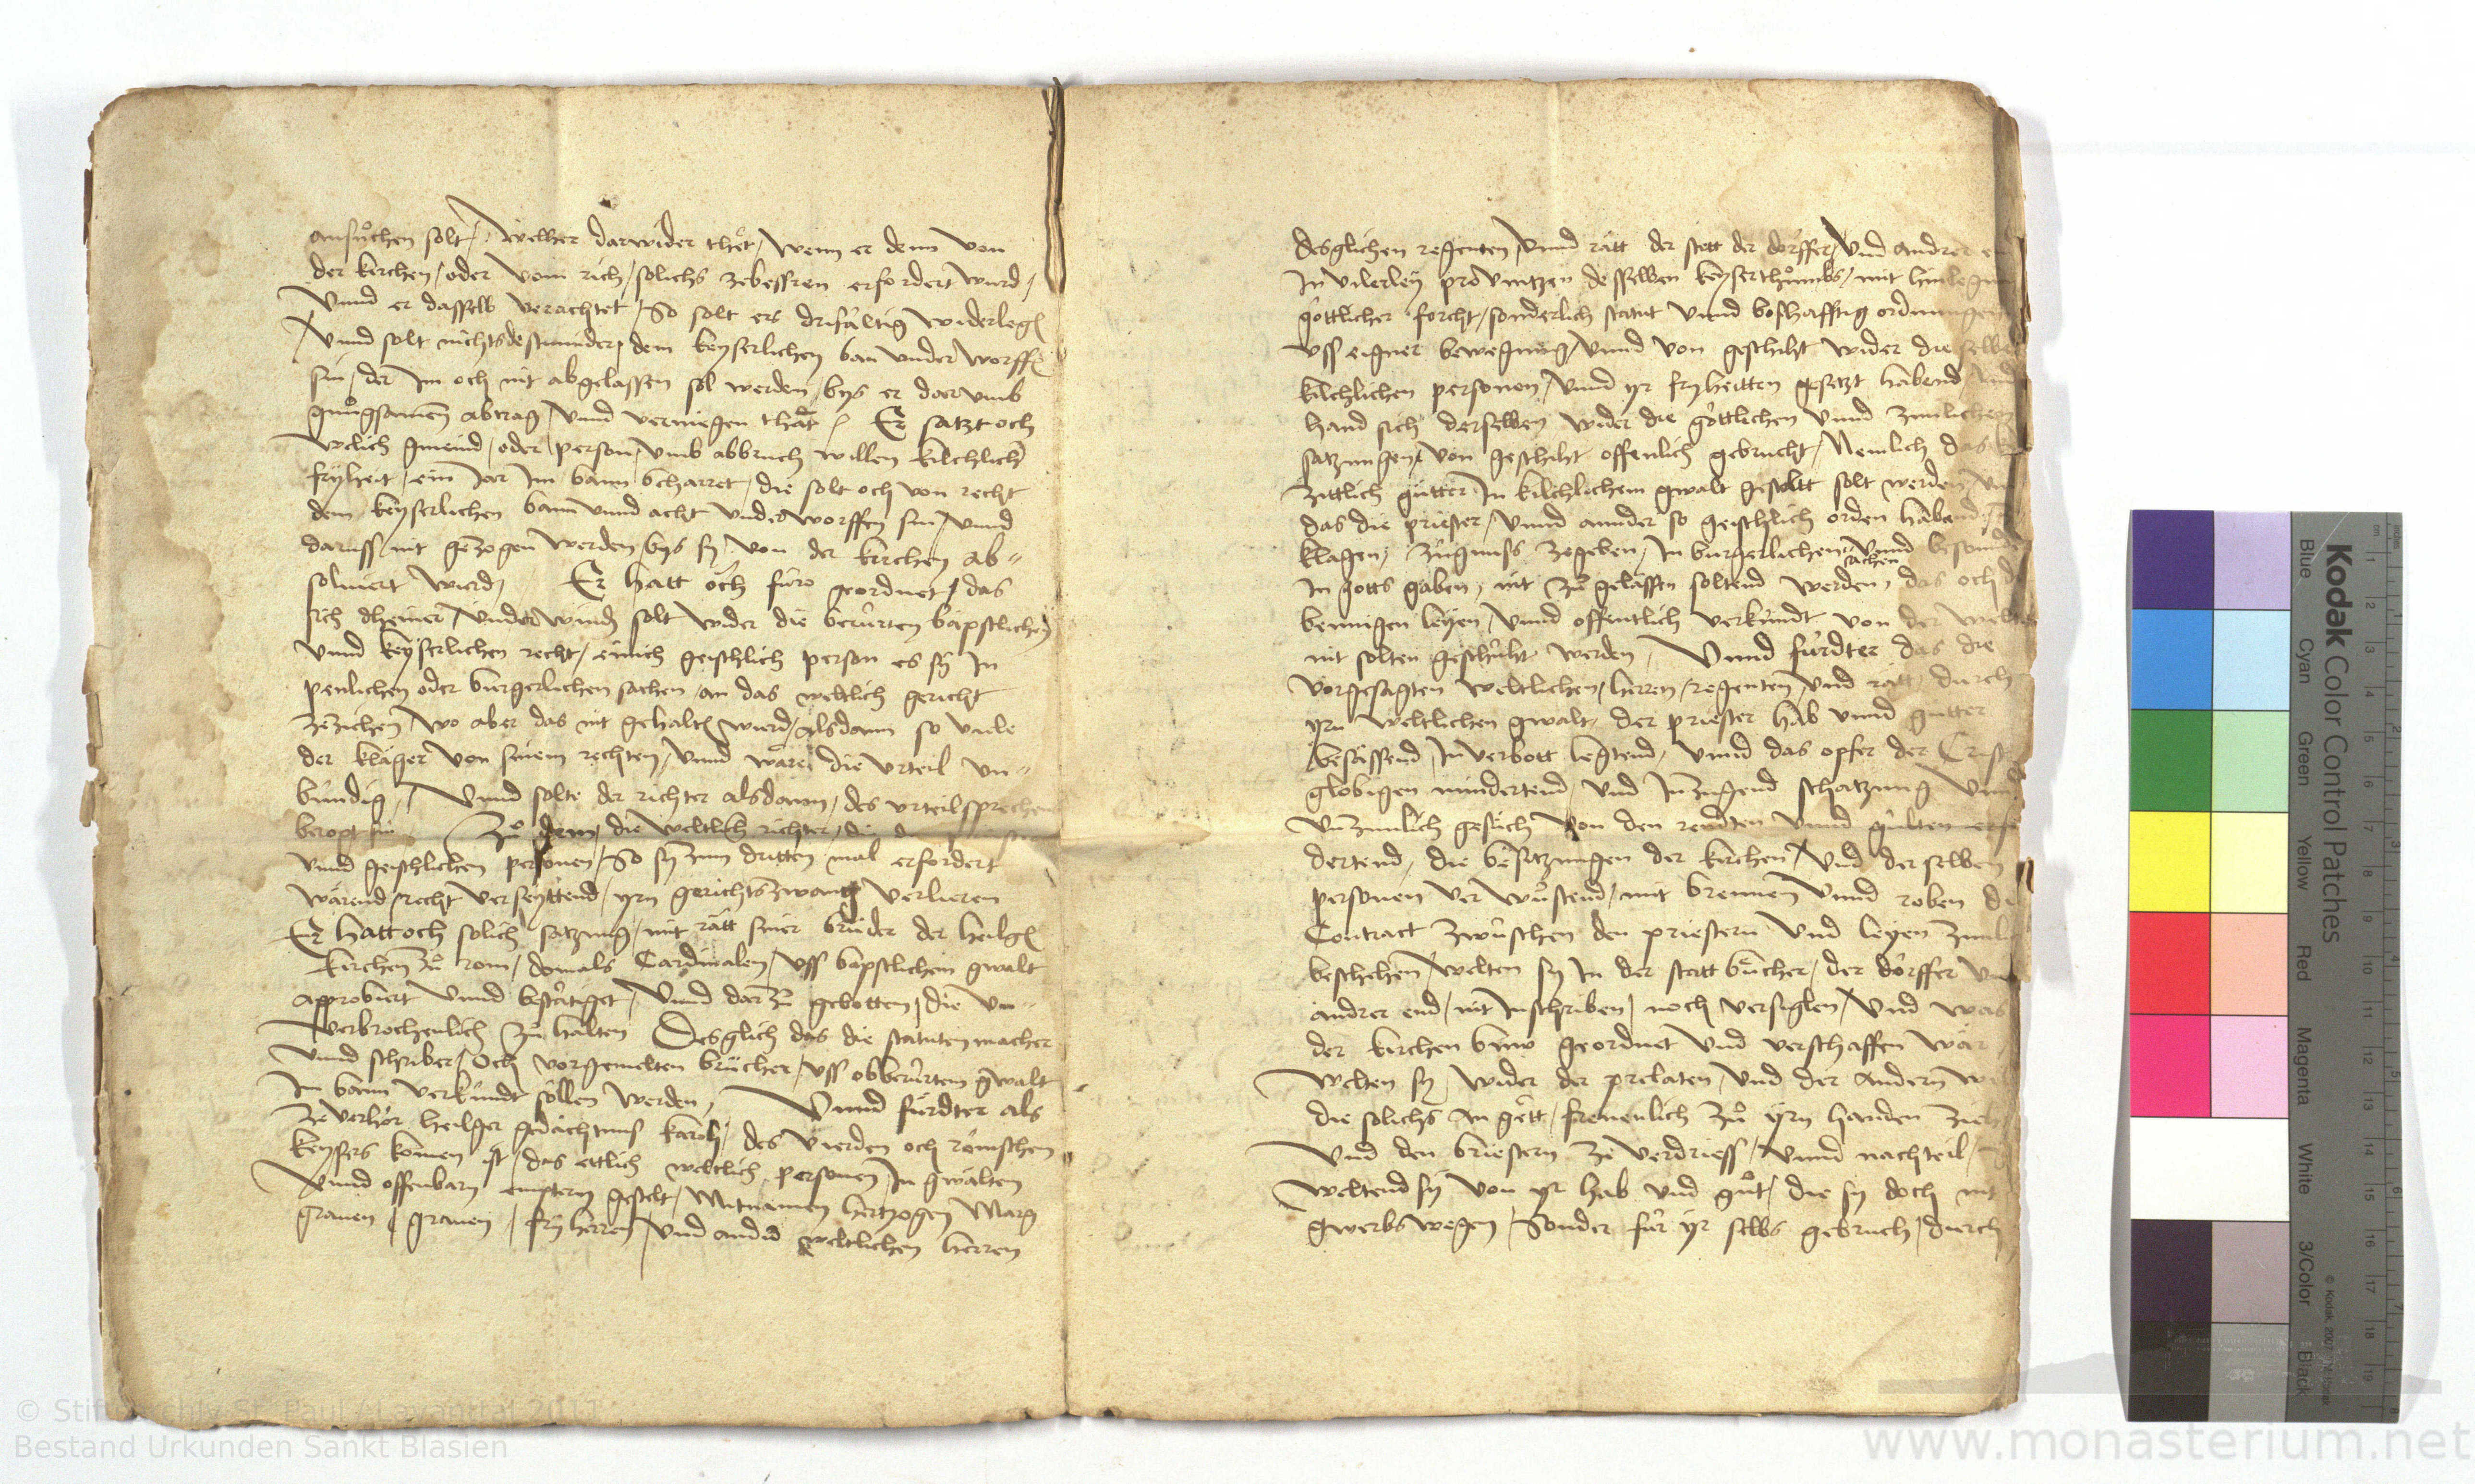 ansůchen solt / Welher darwider thet / wenn er denn von
der kirchen / oder vom rich / solichs zebessren erfordert wurd /
Vnnd er dasselb verachtet / So solt ers drifåltig widerlegen
Vnnd solt nichtsdestminder / dem keyserlichen ban vnderworffen
sin / der Im och nit abgelassen sol werden / bys er darvmb
gnůgsamen abtrag / vnnd vernůgen thåt / Er satzt och
welich gmeind / oder person / vmb abbruch willen kilchlicher
fryheit / ein Jar Im bann beharret / die solt och von recht
dem keyserlichen bann vnnd acht vnderworffen sin / vnnd
daruss nit gezogen werden / bys sy von der kirchen ab-
soluiert wird / Er hatt och fůro geordnet / das
sich dheiner / vnderwinden solt wider die berůrten båpstlichen
vnnd keyserlichen recht / einich geistlich person es sy In
penlichen oder burgerlichen sachen / an das weltlich gericht
zeziehen / wo aber das nit gehalten wurd / alsdann so viele
der kläger von sinem rechten / vnnd wåre die vrteil vn-
bůndig / Vnnd solte der richter alsdann / des vrteilsprechen
beropt sin Zů dem / die weltlich richter / die den
vnnd geistlichen personen / So sy zum dritten mal erfordert
wårend / recht verseyttend / yrn gerichtszwang verlieren
Er hatt och solich satzung / mit rått siner brůder der heilgen
kirchen zů rom / domals Cardinalen / vss båpstlichem gwalt
approbiert vnnd beståtiget / Vnnd darzů gebotten / die vn-
verbrochenlich zů halten Desglich das die statuten macher
vnnd schriber / Och vorgemelten brůcher / vss obberůrtem gwalt
In bann verkůndt sôllen werden / Vnnd fůrdter als
ze verhôr heilger gedåchtnus karoli / des vierden och rômschen
keysers komen ist / das ettlich weltlich personen In gwålten
Vnnd offenbarn emptern gesetzt / Mitnammen hertzogen Marg
grauen / grauen / fryherren / vnd ander weltlichen herren
desglichen regenten / vnnd rått der stett der dôrffer / vnd andrer
In vilerley prouintzen desselben keyserthůmbs / mit hinlegung
gôttlicher forcht / sonderlich statut vnnd boshafftig ordnungen
vss eigner bewegnng / vnnd von geschiht wider die selben
kilchlichen personen / vnnd yr fryheitten gesetzt habend /
hand sich derselben wider die gôttlichen vnnd zimlichen
satzungen / von geschiht offenlich gebrucht / Nemlich das k
zittlich gůtter In kilchlichem gwalt gestellt solt werden
das die priester / vnnd annder so geistlich orden habend /
klagen / zůgnuss zegeben / In burgerlichen sachen vnnd besonder
In gotts gaben / nit zůgelassen soltend werden / das och
bennigen leyen / vnnd offentlich verkůndt von der
nit solten geschůht werden / Vnnd fůrdter das die
vorgesagten weltlichen / herren / regenten / vnd rått / durch
yrn weltlichen gwalt / der priester hab vnnd gůtter
besåssend / In verbott legtend / vnnd das opfer der Crist
glôbigen mindertend / vnd In zugend schatzung vnnd
vnzimlich gesůch von den renndten vnnd gůlten erfor
dertend / die besitzungen der kirchen / vnd derselben
personen verwůstend / mit brennen vnnd roben
Contract zwůschen den priestern vnd leyen
beschehen / welten sy In der statt bůcher / der dôrffer
andrer end / nit Inschriben / noch versiglen / Vnd was
der kirchen buw geordnet vnd verschaffen wår
Welten sy / wider der prelaten / vnd der andern
die solichs an gett / freuenlich zů yrn handen zieh
Vnd den briestern ze verdriess / vnnd nachteil /
Weltend sy von yr hab vnd gůt / die sy doch nit
gwerbs wegen / sonder fůr yr selbs gebruch / durch
Kodak Color Control Patches
Blue Cyan Green Yellow Red Magenta White 3/Color Black
© Kodak, 2007
© Stiftsarchiv St. Paul / Lavanttal 2011
Bestand Urkunden Sankt Blasien
www.monasterium.net